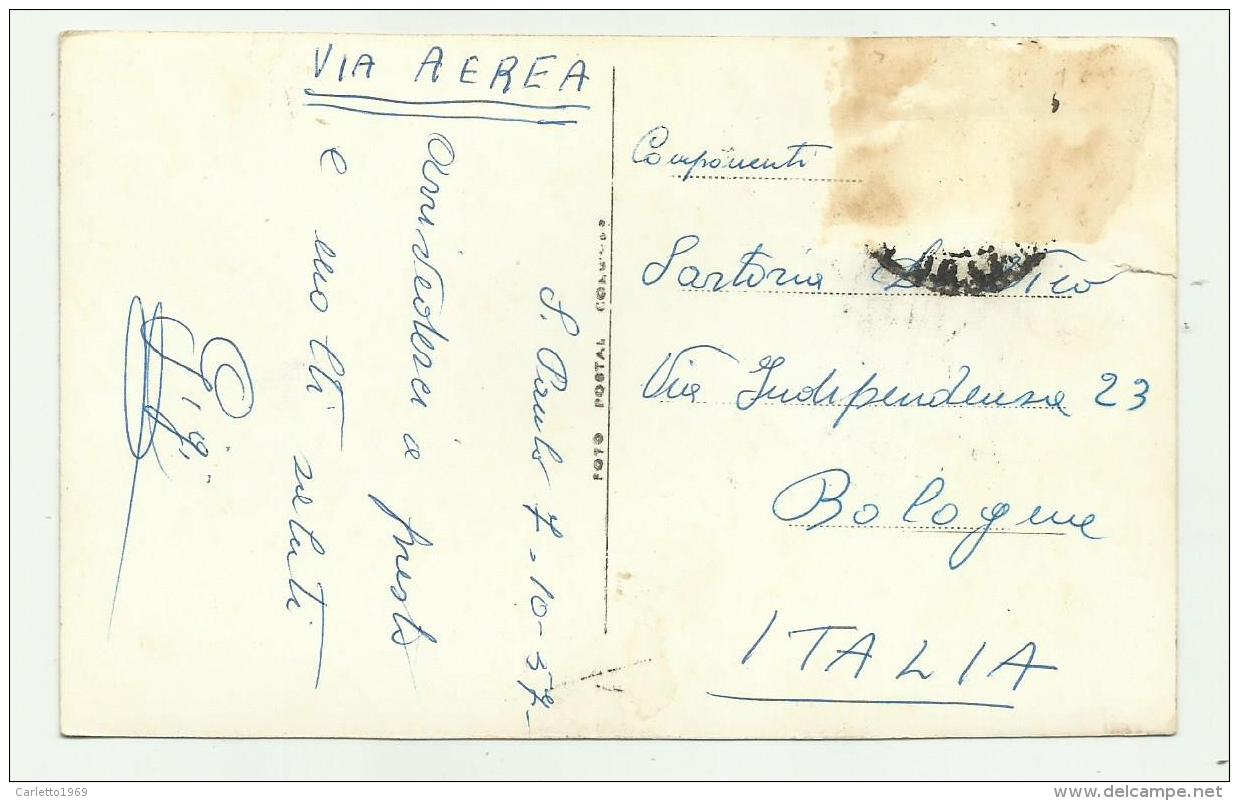 VIA AEREA
S. Paulo 7-10-57-
Arrivederci a presto
e molti saluti
Gigi
FOTO POSTAL COLOMBO
Componenti
Sartoria
Via Indipendensa 23
Bologna
ITALIA
Carletto1969
delcampe.net